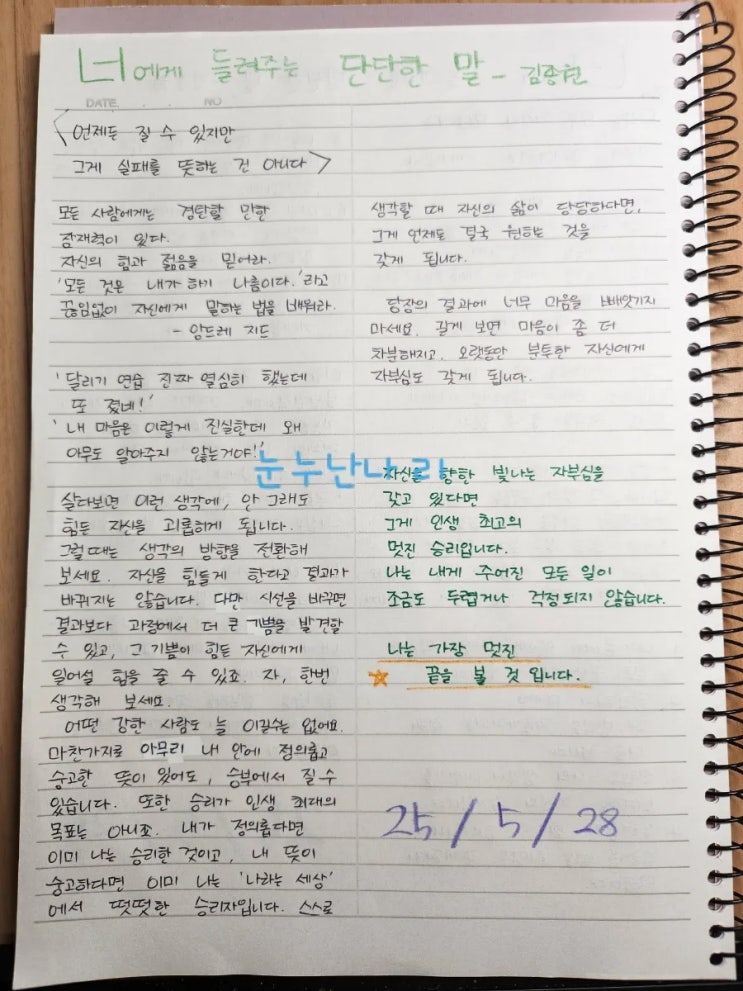 너에게 들려주는 단단한 말 - 김종현
DATE . . NO
<언제든 질 수 있지만
그게 실패를 뜻하는 건 아니다>
모든 사람에게는 경탄할 만한
잠재력이 있다.
자신의 힘과 젊음을 믿어라.
'모든 것은 내가 하기 나름이다.'라고
끊임없이 자신에게 말하는 법을 배워라.
- 앙드레 지드
'달리기 연습 진짜 열심히 했는데
또 졌네!'
'내 마음은 이렇게 진실한데 왜
아무도 알아주지 않는거야!'
살다보면 이런 생각에, 안 그래도
힘든 자신을 괴롭히게 됩니다.
그럴때는 생각의 방향을 전환해
보세요. 자신을 힘들게 한다고 결과가
바뀌지는 않습니다. 다만 시선을 바꾸면
결과보다 과정에서 더 큰 기쁨을 발견할
수 있고, 그 기쁨이 힘든 자신에게
일어설 힘을 줄 수 있죠. 자, 한번
생각해 보세요.
어떤 강한 사람도 늘 이길수는 없어요.
마찬가지로 아무리 내 안에 정의롭고
숭고한 뜻이 있어도, 승부에서 질 수
있습니다. 또한 승리가 인생 최대의
목표는 아니죠. 내가 정의롭다면
이미 나는 승리한 것이고, 내 뜻이
숭고하다면 이미 나는 '나라는 세상'
에서 떳떳한 승리자입니다. 스스로
생각할 때 자신의 삶이 당당하다면,
그게 언제든 결국 원하는 것을
갖게 됩니다.
당장의 결과에 너무 마음을 빼앗기지
마세요. 길게 보면 마음이 좀 더
차분해지고, 오랫동안 분투한 자신에게
자부심도 갖게 됩니다.
눈누난나라
자신을 향한 빛나는 자부심을
갖고 있다면
그게 인생 최고의
멋진 승리입니다.
나는 내게 주어진 모든 일이
조금도 두렵거나 걱정되지 않습니다.
나는 가장 멋진
끝을 볼 것 입니다.
25/5/28